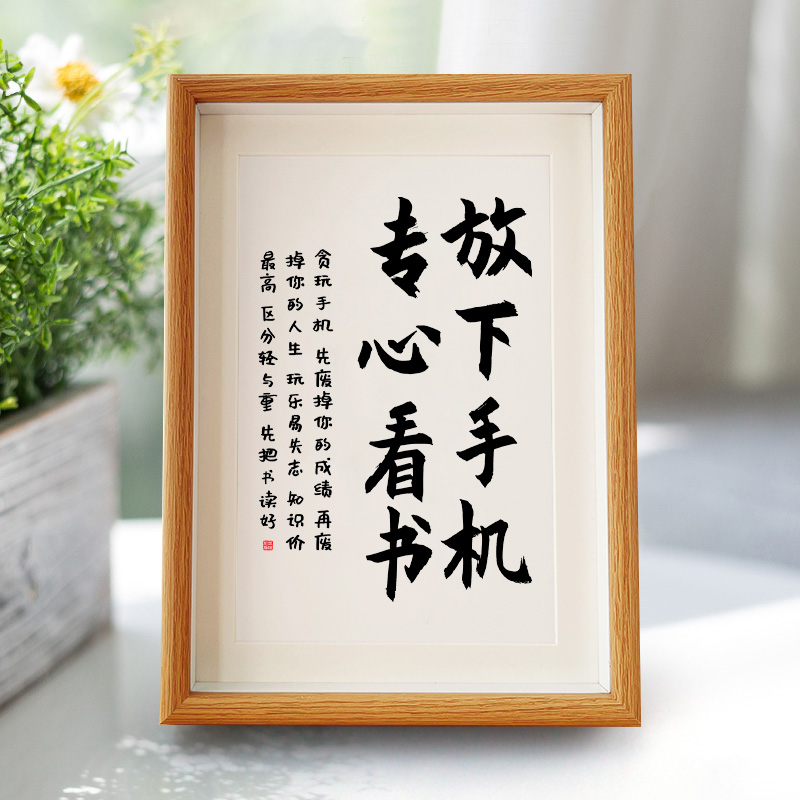 放下手机
专心看书
贪玩手机 先废掉你的成绩 再废
掉你的人生 玩乐易失志 知识价
最高 区分轻与重 先把书读好